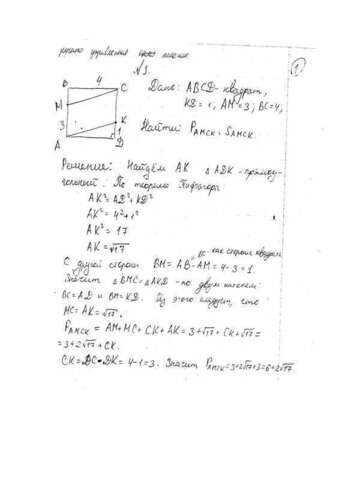 №1.
①
B 4 C
M
3
K
1
A D
Дано: ABCD - квадрат,
KD = 1, AM = 3; BC = 4;
Найти: P_AMCK, S_AMCK
Решение: Найдём AK. △ADK - прямоу-
гольный. По теореме Пифагора
AK² = AD² + KD²
AK² = 4² + 1²
AK² = 17
AK = √17
С другой стороны BM = AB - AM = 4 - 3 = 1.
BC как стороны квадрата
Значит △BMC = △AKD - по двум катетам:
BC = AD и BM = KD. Из этого следует, что
MC = AK = √17.
P_AMCK = AM + MC + CK + AK = 3 + √17 + CK + √17 =
= 3 + 2√17 + CK.
CK = DC - DK = 4 - 1 = 3. Значит P_AMCK = 3 + 2√17 + 3 = 6 + 2√17